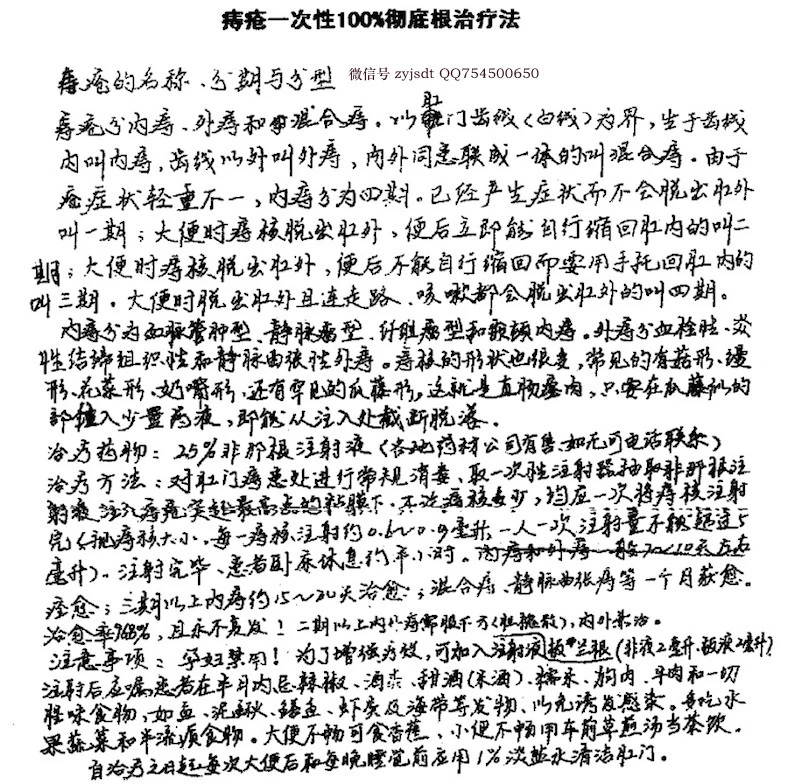 痔疮一次性100%彻底根治疗法
痔疮的名称、分期与分型 微信号 zyjsdt QQ754500650
痔疮分内痔、外痔和混合痔。以肛门齿线(白线)为界,生于齿线
内叫内痔,齿线以外叫外痔,内外同患联成一体的叫混合痔。由于
疮症状轻重不一,内痔分为四期。已经产生症状而不会脱出肛外
叫一期;大便时痔核脱出肛外,便后立即能自行缩回肛内的叫二
期;大便时痔核脱出肛外,便后不能自行缩回而要用手托回肛内的
叫三期。大便时脱出肛外且连走路、咳嗽都会脱出肛外的叫四期。
内痔分为血脉管肿型、静脉瘤型、纤维瘤型和内痔。外痔分血栓性、炎
性结缔组织性和静脉曲张性外痔。痔核的形状也很多,常见的有菇形、
形、花菜形、奶嘴形、还有罕见的瓜藤形,这就是直肠瘜肉,只要在瓜藤似的
部入少量药液,即能从注入处截断脱落。
治疗药物:25%非那根注射液(各地药材公司有售、如无可电话联系)
治疗方法:对肛门痔患处进行常规消毒、取一次性注射器抽取非那根注
射液注入痔疮突起最高点的粘膜下,不论痔核多少,均应一次将痔核注射
完(视痔核大小,每一痔核注射约0.6~0.9毫升,一人一次注射量不能超过5
毫升)。注射完毕、患者卧床休息约半小时。内痔和外痔一般
痊愈;三期以上内痔约15~20天治愈;混合痔、静脉曲张痔等一个月获愈。
治愈率96.8%,且永不复发!二期以上内外痔需服下方(),内外兼治。
注意事项:孕妇禁用!为了增强疗效,可加入注射液板兰根(非液2毫升、板液2毫升)
注射后应嘱患者在半月内忌辣椒、酒类、甜酒(米酒)、糯米、狗肉、牛肉和一切
腥味食物,如鱼、泥鳅、鳝鱼、虾类及海带等发物,以免诱发感染。多吃水
果蔬菜和半流质食物。大便不畅可食香蕉,小便不畅用车前草煎汤当茶饮。
自治疗之日起每次大便后和每晚睡觉前应用1%淡盐水清洁肛门。